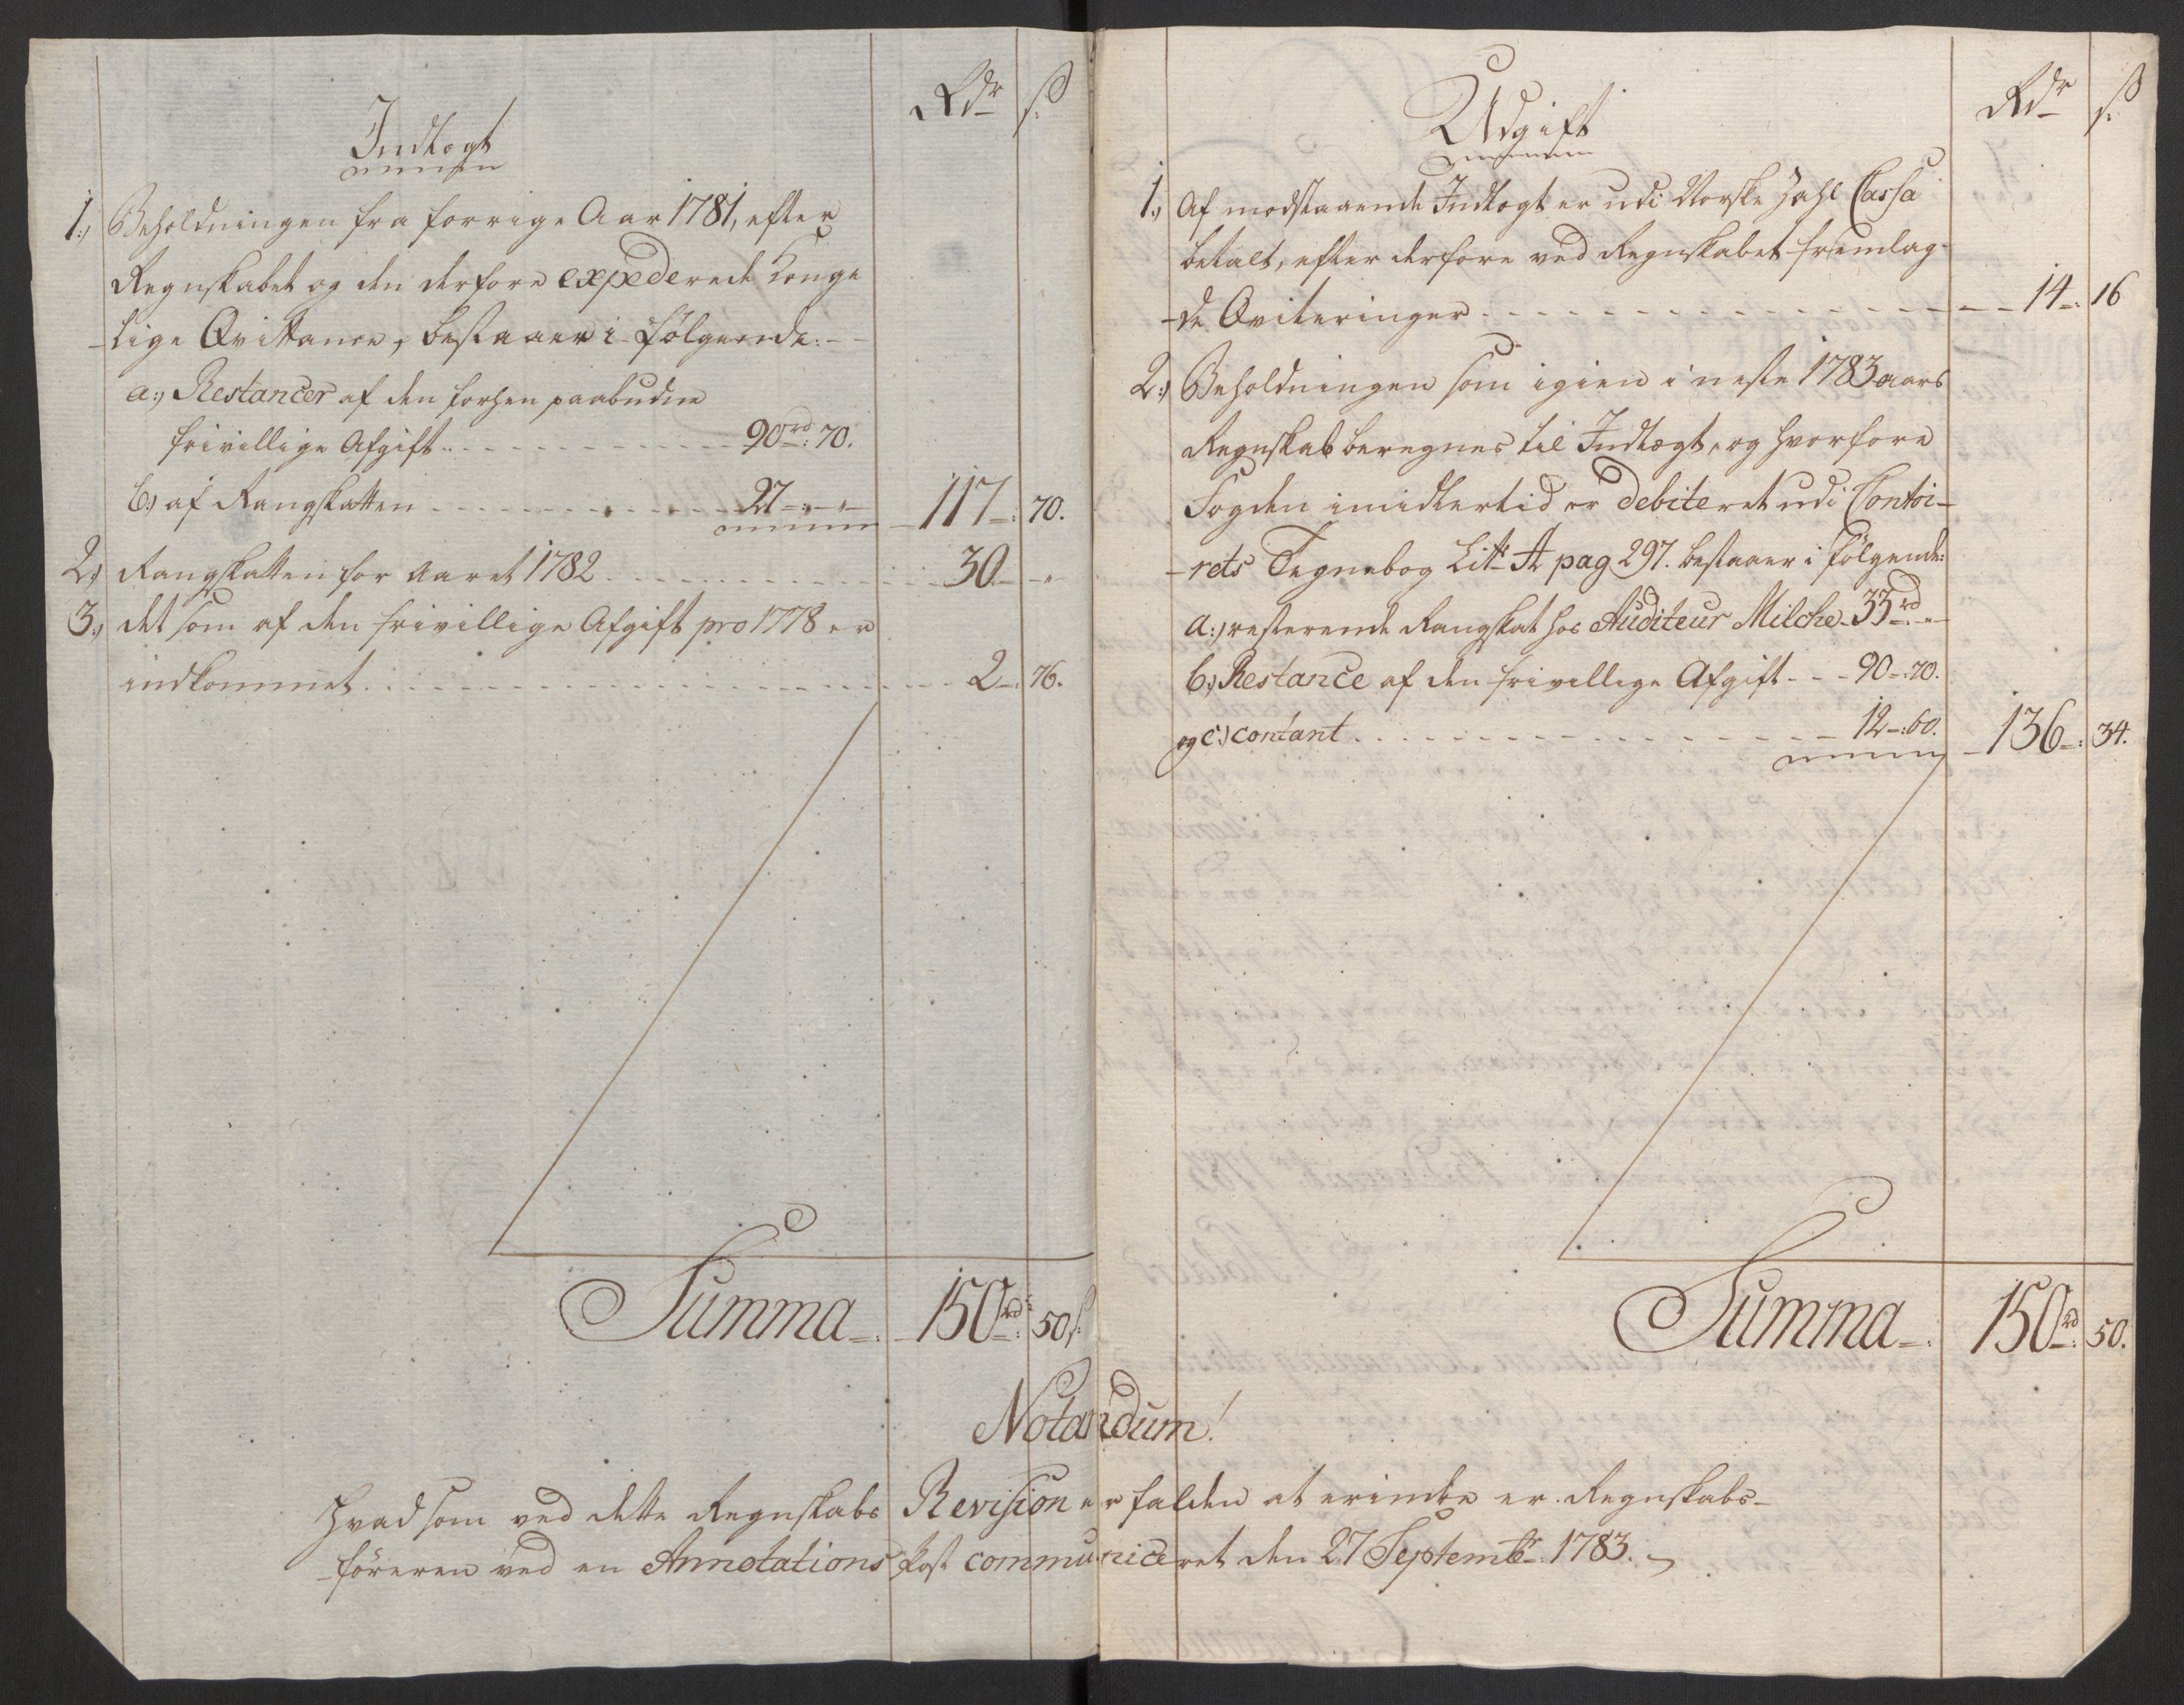 Rdr ß.
Indtægt
1.) Beholdningen fra forrige Aar 1781, efter
Regnskabet og den derfore expederede Konge
-lige Qvittance, bestaaer i følgende:
a.) Restancer af den forhen paabudne
frivillige Afgift 90rd: 70.
b.) af Rangskatten 27 -:- 117-: 70.
2.) Rangskatten for Aaret 1782 30 - -
3.) det som af den frivillige Afgift pro 1778 er
indkommet 2-: 76.
Summa-. 150rd: 50ß.
Rdr ß.
Udgift
1.) Af modstaaende Indtægt er udi Norske Zahl Cassa
betalt, efter derfore ved Regnskabet fremlag-
-de Qviteringer 14-: 16
2.) Beholdningen som igien i neste 1783 aars
Regnskab beregnes til Indtægt, og hvorfore
Fogden imidlertid er debiteret udi Contoi-
-rets Tegnebog Litr A pag 297. bestaaer i følgende:
a.) resterende Rangskat hos Auditeur Milche 33rd -
b.) Restance af den frivillige Afgift - - - 90-: 70.
og c.) contant 12-: 60. 136-: 34.
Summa-. 150rd: 50.
Notandum!
Hvad som ved dette Regnskabs Revision er falden at erindre er Regnskabs-
-føreren ved en Annotations Post communiceret den 27 Septembr: 1783.